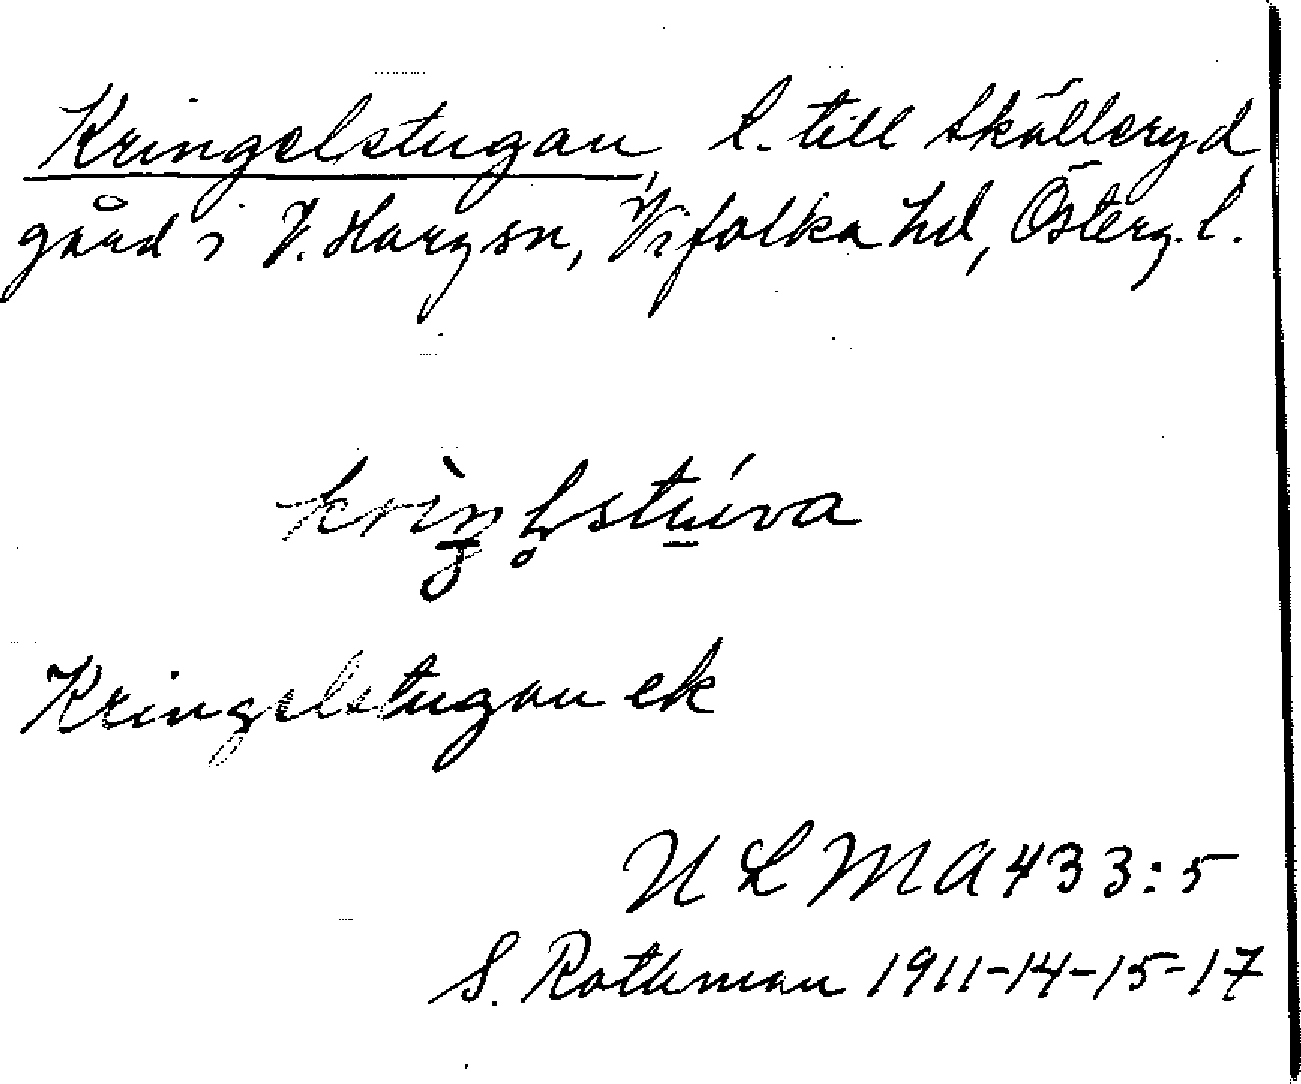 Kringelstugan, l. till Skälleryd
gård i V. Harg sn, Vifolka hd, Österg. l.
Kringelstugan ek
ULMA 433:5
S. Rothman 1911-14-15-17